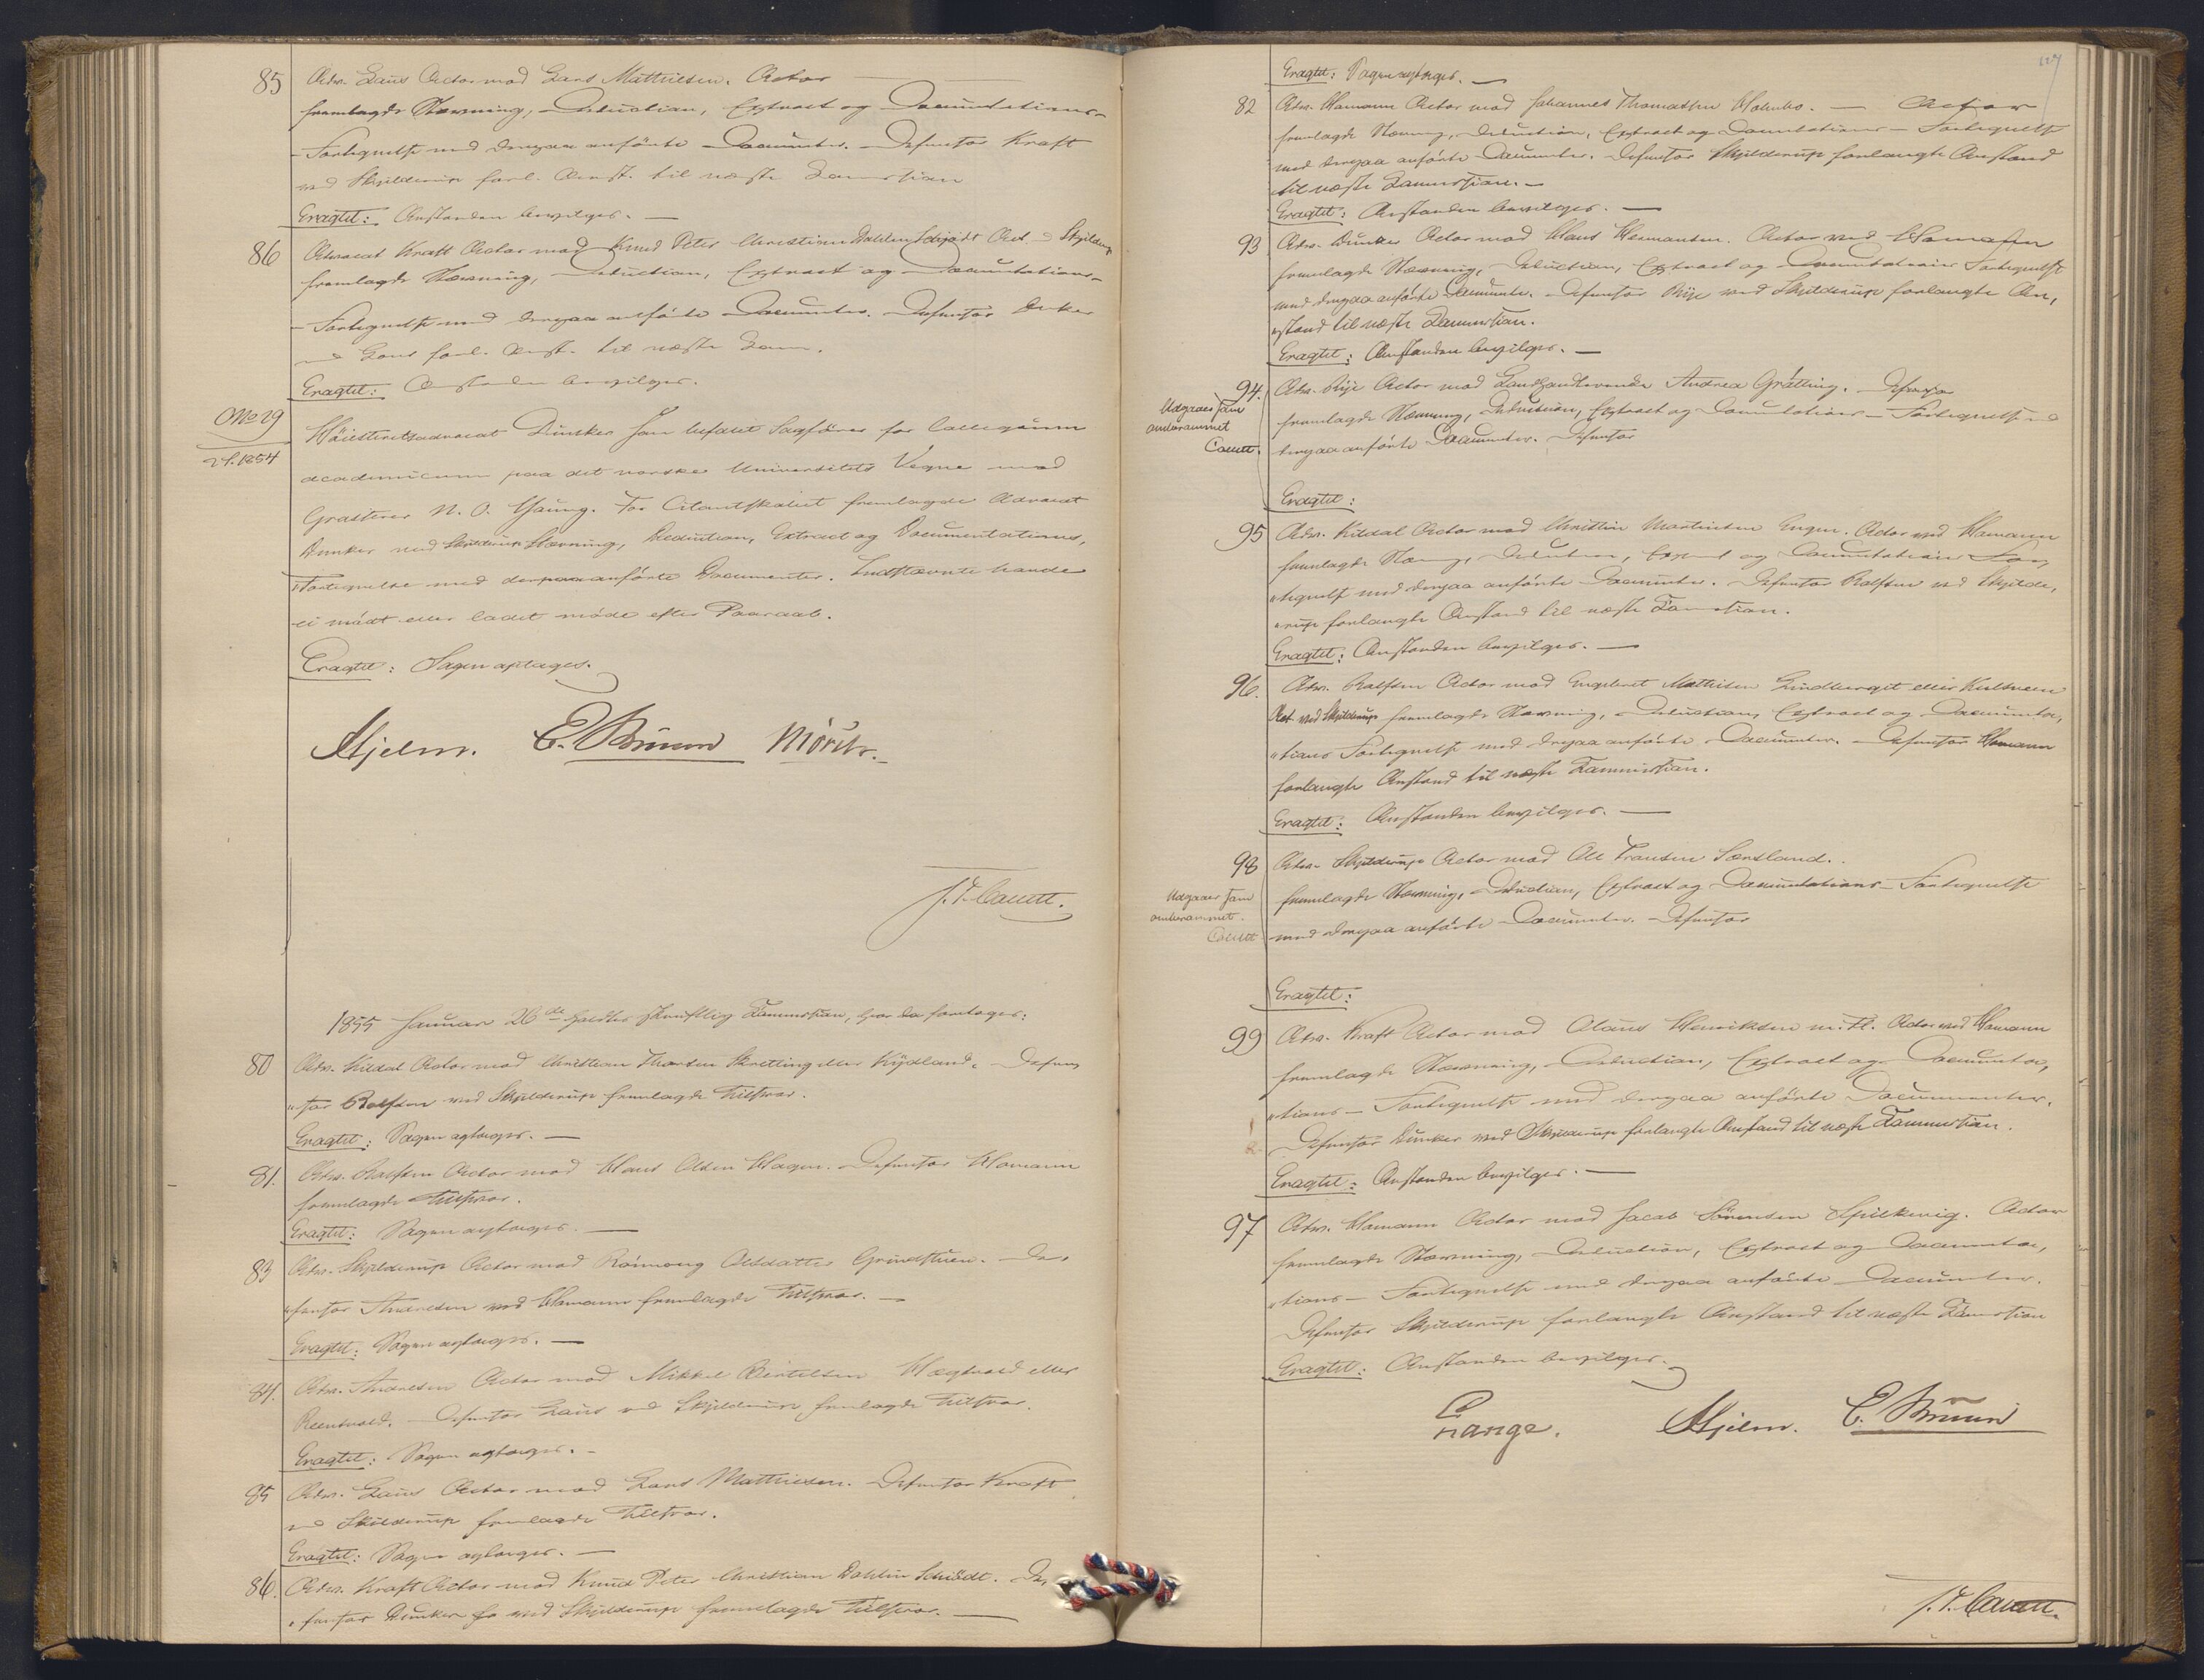 85 Adv. Lous Actor mod Lars Mathiesen. Actor
fremlagde Stævning, Deduction, Extract og Documentations-
-Fortegnelse med derpaa anførte Documenter. Defensor Kraft
ved Skjelderup forl. Anst. til næste Kamrstion
Eragtet: Anstanden bevilges. —
86 Advocat Kraft Actor mod Knud Peter Christian Dahlin Schiødt Act. v Skjelderup
fremlagde Stævning, Deduction, Extract og Documentations-
-Fortegnelse med derpaa anførte Documenter. Defensor Dunker
ved Lous forl. Anst. til næste Kam.
Eragtet: Anstanden bevilges.
No 29
2 S. 1854
Höiesteretsadvocat Dunker som befalet Sagfører for Collegium
academicum paa det norske Universitets Vegne mod
Grosserer N. O. Young. For Citantskabet fremlagde Advocat
Dunker ved Skjelderup Stævning, Deduction, Extract og Documentations,
"Fortegnelse med derpaa anførte Documenter. Indstævnte havde
ei mødt eller ladet møde efter Paaraab.
Eragtet: Sagen optages.
Hjelm. E. Bruun Mörch.
J. F. Cauett.
1855 Januar 26de holdtes skriftlig Kammrstion, hvor da foretoges:
80 Adv. Kildal Actor mod Christian Thorsen Skretting eller Kydland. Defen,
"sor Rolfsen ved Skjelderup fremlagde Tilsvar.
Eragtet: Sagen optages. —
81. Adv. Rolfsen Actor mod Hans Olsen Hagen. Defensor Homann
fremlagde Tilsvar.
Eragtet: Sagen optages. —
83 Adv. Skjelderup Actor mod Rönnoug Olsdatter Grundstuen. De,
"fensor Andresen ved Homann fremlagde Tilsvar. —
Eragtet: Sagen optages. —
84. Adv. Andresen Actor mod Mikkel Bertelsen Hegtvold eller
Reensvold. Defensor Lous ved Skjelderup fremlagde Tilsvar.
Eragtet: Sagen optages. —
85 Adv. Lous Actor mod Lars Mathiesen. Defensor Kraft
ved Skjelderup fremlagde Tilsvar.
Eragtet: Sagen optages. —
86. Adv. Kraft Actor mod Knud Peter Christian Dahlin Schiödt. De,
"fensor Dunker ved Skjelderup fremlagde Tilsvar. —
127
Eragtet: Sagen optages. —
82 Adv. Homann Actor mod Johannes Thomassen Holmbo. — Actor
fremlagde Stævning, Deduction, Extract og Documentations-Fortegnelse
med derpaa anførte Documenter. Defensor Skjelderup forlangte Anstand
til næste Kammrstion. —
Eragtet: Anstanden bevilges. —
93 Adv. Dunker Actor mod Hans Hermansen. Actor ved Homann
fremlagde Stævning, Deduction, Extract og Documentations Fortegnelse
med derpaa anførte Documenter. Defensor Bije ved Skjelderup forlangte An,
"stand til næste Kammrstion.
Eragtet: Anstanden bevilges. —
94. Adv. Bije Actor mod Landhandlerenke Andrea Grøtting. Defensor
Udgaaer som
omberammet
Cauett.
fremlagde Stævning, Deduction, Extract og Documentations-Fortegnelse med
derpaa anførte Documenter. Defensor
Eragtet:
95 Adv. Kildal Actor mod Christian Martinsen Engen. Actor ved Homann
fremlagde Stævning, Deduction, Extract og Documentations For,
"tegnelse med derpaa anførte Documenter. Defensor Rolfsen ved Skjelde,
"rup forlangte Anstand til næste Kamrstion.
Eragtet: Anstanden bevilges. —
96. Adv. Rolfsen Actor mod Engebret Mathisen Lindberget eller Kulsveen
Act ved Skjelderup fremlagde Stævning, Deduction, Extract og Documenta,
"tions Fortegnelse med derpaa anførte Documenter. Defensor Homann
forlangte Anstand til næste Kammrstion.
Eragtet: Anstanden bevilges. —
98 Adv. Skjelderup Actor mod Ole Transen Sæveland.
Udgaaer som
omberammet.
Cauett
fremlagde Stævning, Deduction, Extract og Documentations-Fortegnelse
med derpaa anførte Documenter. Defensor
Eragtet:
99 Adv. Kraft Actor mod Olaus Henriksen m. Fl. Actor ved Homann
fremlagde Stævning, Deduction, Extract og Documenta,
"tions- Fortegnelse med derpaa anførte Documenter.
Defensor Dunker ved Skjelderup forlangte Anstand til næste Kammrstion.
Eragtet: Anstanden bevilges. —
97 Adv. Homann Actor mod Jacob Sörensen Spilkevig. Actor
fremlagde Stævning, Deduction, Extract og Documenta,
"tions- Fortegnelse med derpaa anførte Documenter.
Defensor Skjelderup forlangte Anstand til næste Kamrstion
Eragtet: Anstanden bevilges.
Lange. Hjelm. E. Bruun
J. F. Cauett.